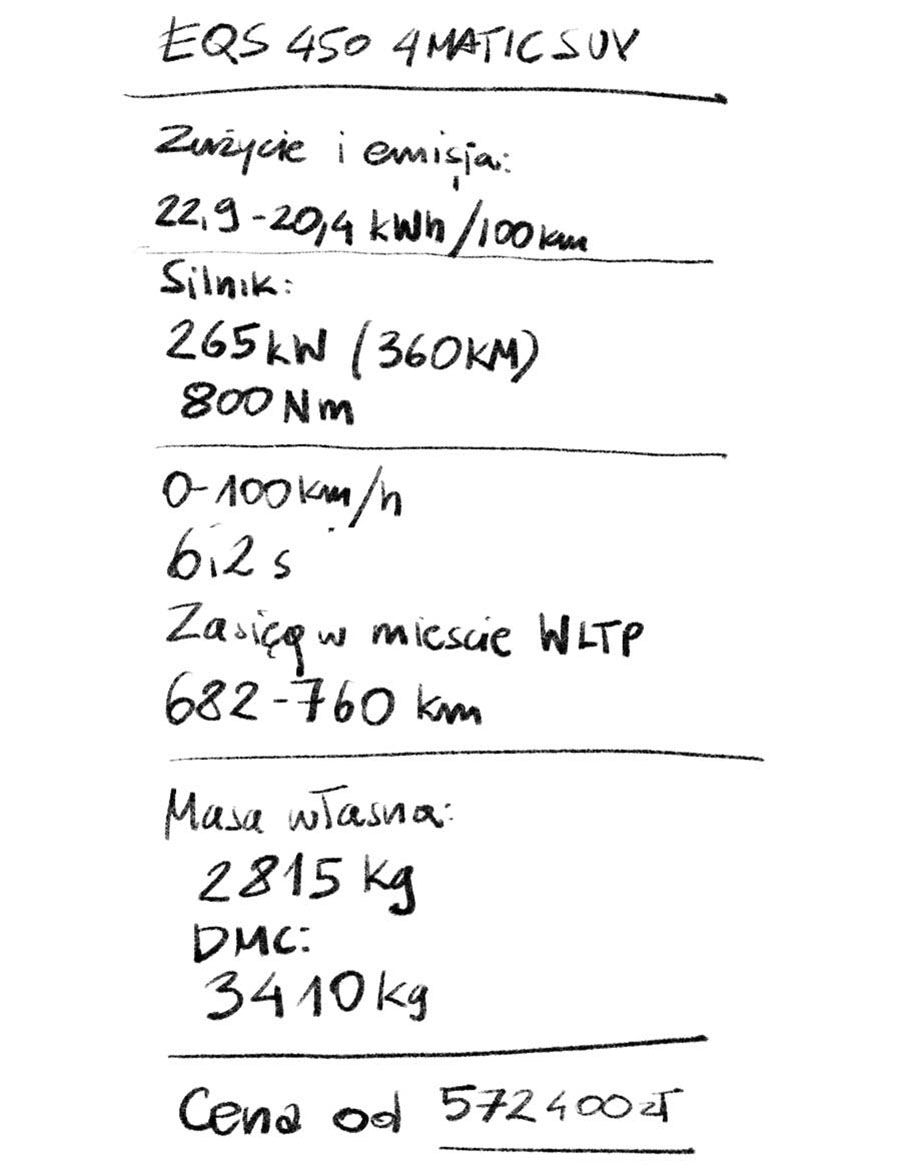 EQS 450 4MATIC SUV
Zużycie i emisja:
22,9-20,4 kWh/100km
Silnik:
265kW (360KM)
800Nm
0-100km/h
6,2 s
Zasięg w miescie WLTP
682-760 km
Masa własna:
2815 kg
DMC:
3410kg
Cena od 572400zł